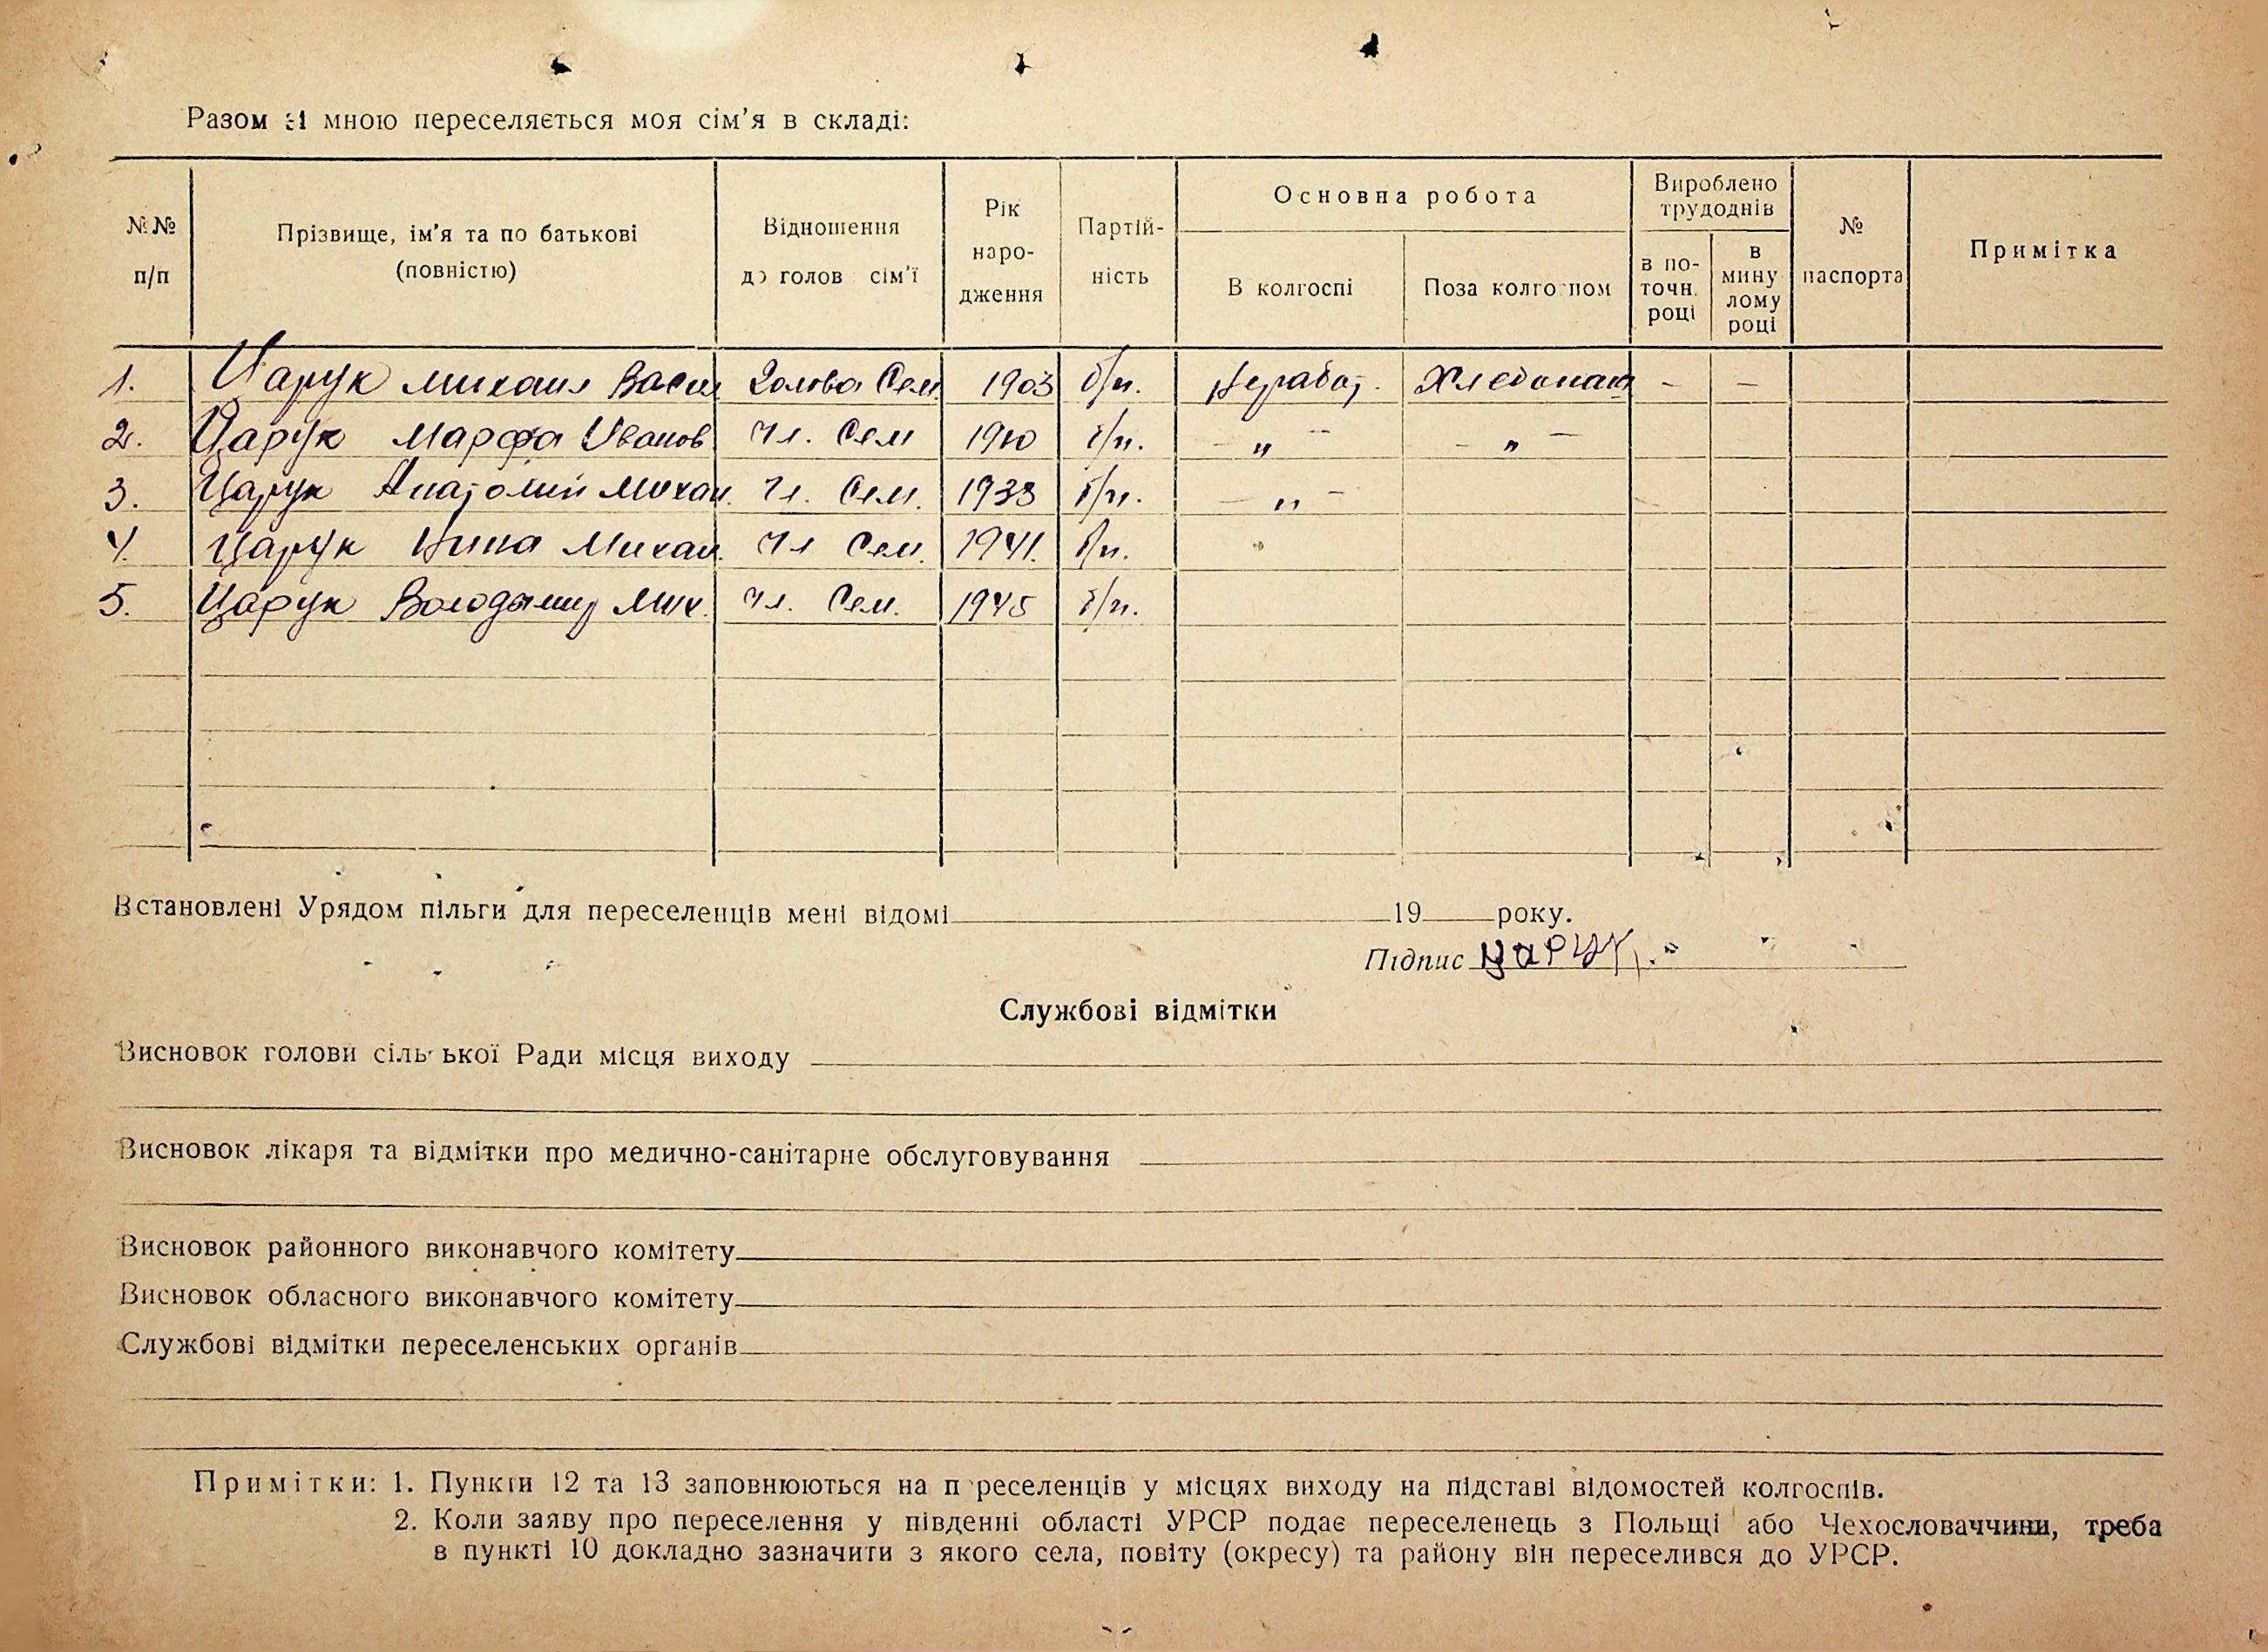 Разом зі мною переселяється моя сім'я в складі:
№№ п/п
Прізвище, ім'я та по батькові (повністю)
Відношення до голов сім'ї
Рік народження
Партійність
Основна робота
В колгоспі
Поза колгоспом
Вироблено трудоднів
в поточн. році
в минулому році
№ паспорта
Примітка
1. Царук Михаил Васил Голова Сем. 1903 б/п. Хлебопаш — —
2. Царук Марфа Иванов Чл. Сем 1910 б/п. — „ — — „ —
3. Царук Анатолий Михаи. Чл. Сем. 1938 б/п. — „ —
4. Царук Нина Михаи. Чл Сем. 1941. б/п.
5. Царук Володымир Мих. Чл. Сем. 1945 б/п.
Встановлені Урядом пільги для переселенців мені відомі 19 року.
Підпис Царук
Службові відмітки
Висновок голови сільської Ради місця виходу
Висновок лікаря та відмітки про медично-санітарне обслуговування
Висновок районного виконавчого комітету
Висновок обласного виконавчого комітету
Службові відмітки переселенських органів
Примітки: 1. Пункти 12 та 13 заповнюються на переселенців у місцях виходу на підставі відомостей колгоспів.
2. Коли заяву про переселення у південні області УРСР подає переселенець з Польщі або Чехословаччини, треба
в пункті 10 докладно зазначити з якого села, повіту (окресу) та району він переселився до УРСР.